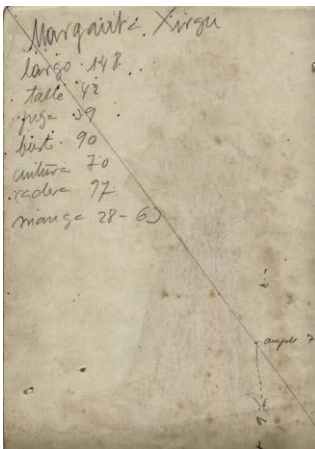 Margarita Xirgu
largo 148
talle 42
39
busto 90
cintura 70
cadera 97
manga 28-63